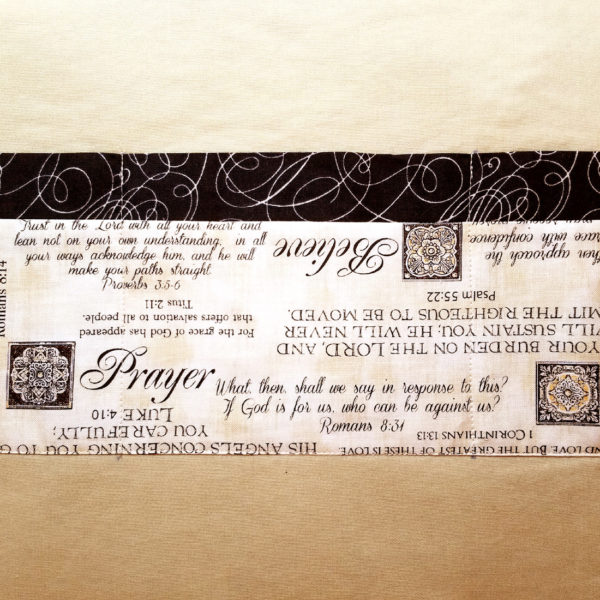 Trust in the Lord with all your heart and
lean not on your own understanding; in all
your ways acknowledge him, and he will
make your paths straight.
Proverbs 3:5-6
Romans 8:14
Believe
then approach the
race with confidence,
Psalm 55:22
YOUR BURDEN ON THE LORD, AND
ILL SUSTAIN YOU; HE WILL NEVER
MIT THE RIGHTEOUS TO BE MOVED.
For the grace of God has appeared
that offers salvation to all people.
Titus 2:11
Prayer
What, then, shall we say in response to this?
If God is for us, who can be against us?
Romans 8:31
HIS ANGELS CONCERNING YOU TO G
YOU CAREFULLY;
LUKE 4:10
AND LOVE. BUT THE GREATEST OF THESE IS LOVE.
1 CORINTHIANS 13:13